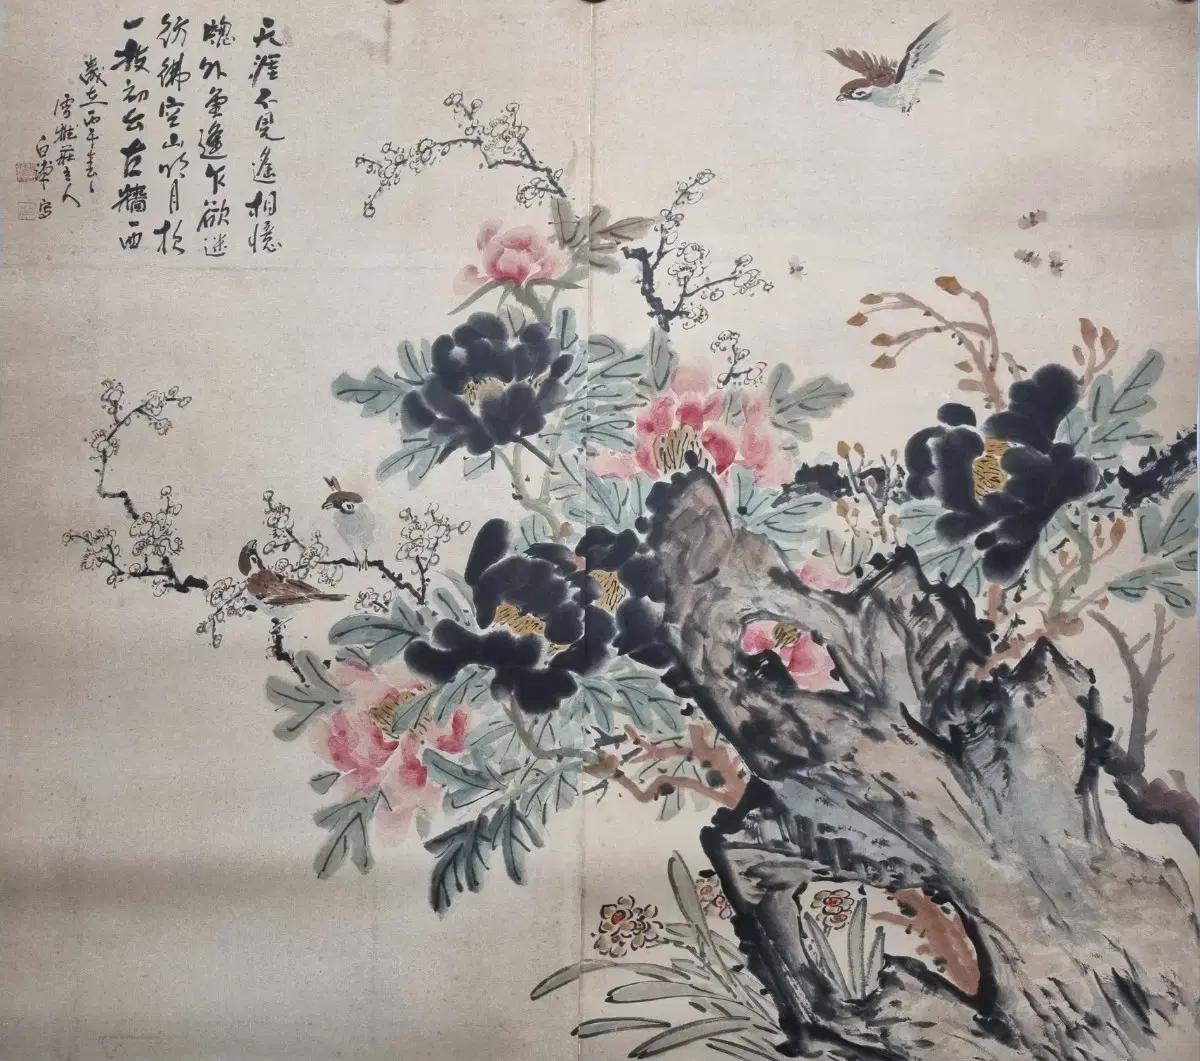 天涯不見遙相憶
牕外重逢乍欲迷
彷彿空山明月
一枝初出古牆西
歲在丙午春
雪莊主人
白寫